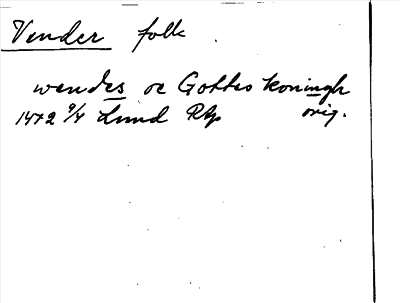 Vender folk
wendes oc Gottes koningh
1472 9/4 Lund Rtp orig.